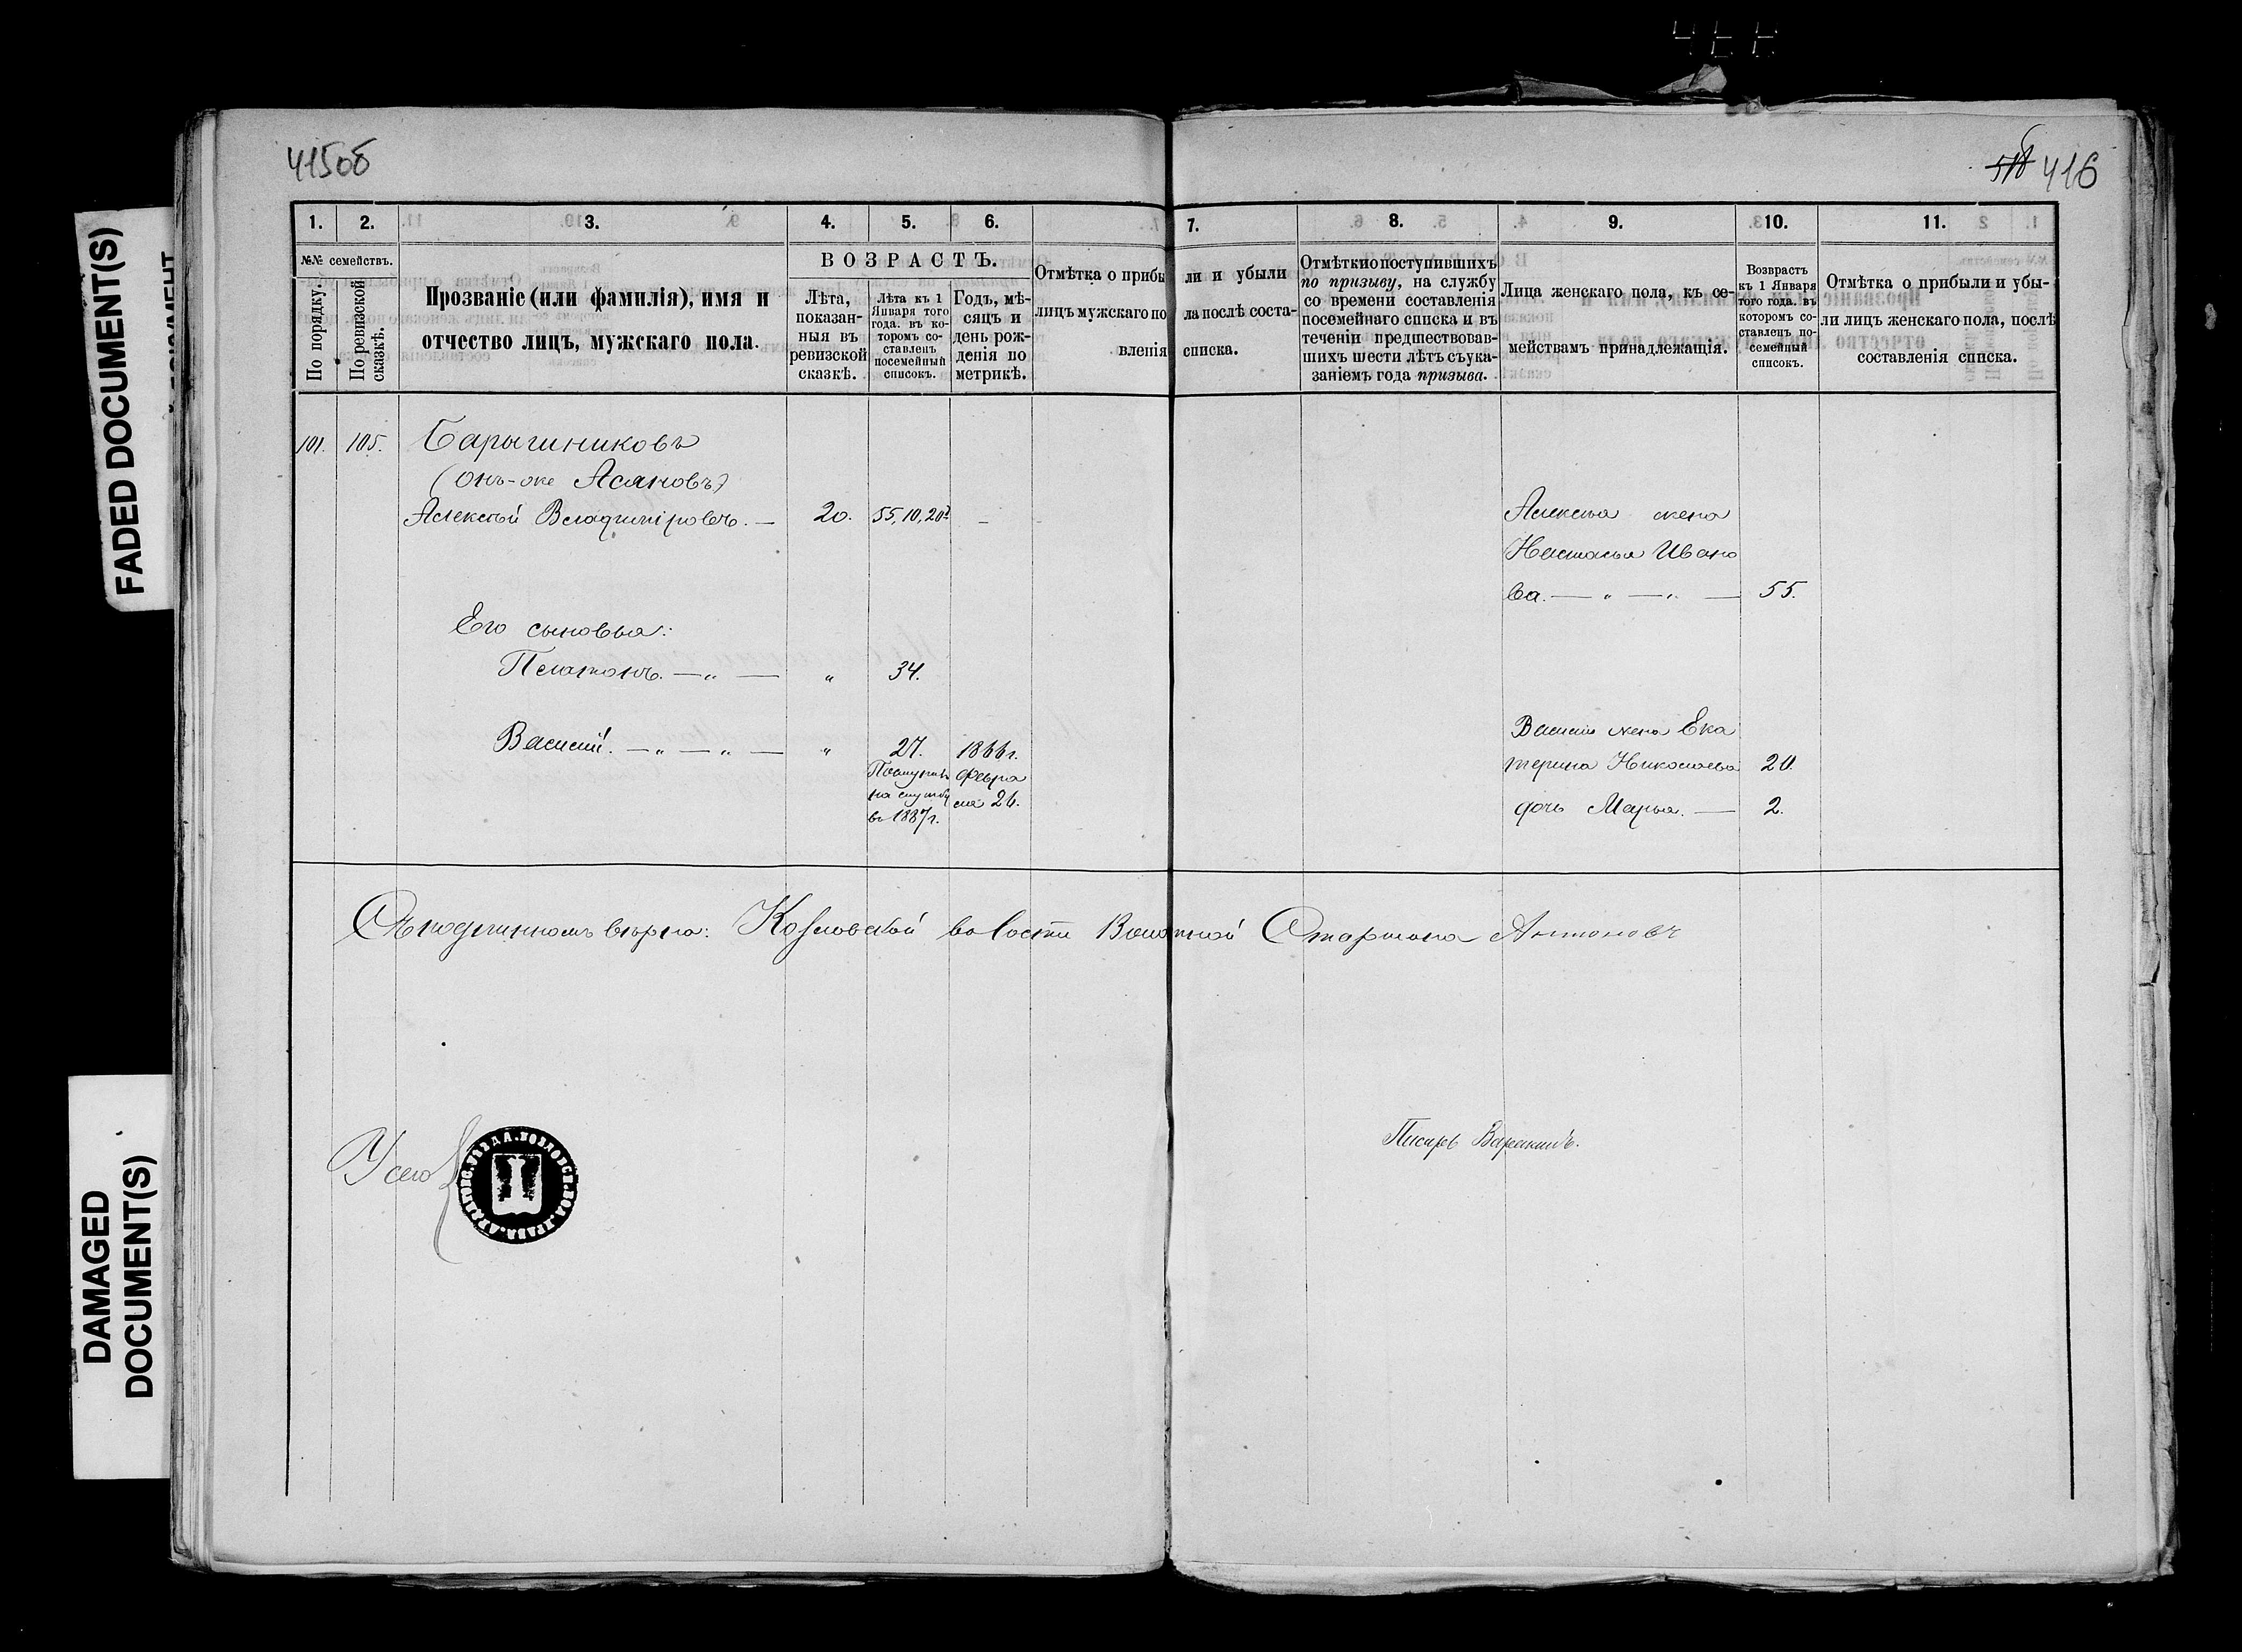 415об
416
1. 2. 3. 4. 5. 6. 7.
7. 8. 9. 10. 11.
№№ семействъ.
По порядку.
По ревизской сказкѣ.
Прозваніе (или фамилія), имя и
отчество лицъ, мужскаго пола.
ВОЗРАСТЪ.
Лѣта,
показан-
ныя въ
ревизской
сказкѣ.
Лѣта къ 1
Января того
года. въ ко-
торомъ со-
ставленъ
посемейный
списокъ.
Годъ, мѣ-
сяцъ и
день рож-
денія по
метрикѣ.
Отмѣтка о прибы
ли и убыли
лицъ мужскаго по
ла послѣ соста-
вленія
списка.
Отмѣтки о поступившихъ
по призыву, на службу
со времени составленія
посемейнаго списка и въ
теченіи предшествовав-
шихъ шести лѣтъ съ ука-
заніемъ года призыва.
Лица женскаго пола, къ се-
мействамъ принадлежащія.
Возврастъ
къ 1 Января
того года. въ
которомъ со-
ставленъ по-
семейный
списокъ.
Отмѣтка о прибыли и убы-
ли лицъ женскаго пола, послѣ
составленія списка.
101. 105. Барышниковъ
(онъ-же Асяновъ)
Алексѣй Владиміровъ. — 20. 55,10,20 —
Алексѣя жена
Настасья Ивано
ва. — „ — „ — 55.
Его сыновья:
Платонъ. — „ — „ 34.
Василій. — „ — „ — „ 27. 1866 г.
Поступилъ Февра
на службу ля 26.
въ 1887 г.
Василія жена Ека
терина Николаева 20.
дочь Марья. — 2.
Съ подлиннымъ вѣрно: Козловской волости Волостной Старшина Антоновъ
Писарь
УѢЗДА. КОЗЛОВСК. ВОЛ. ПРАВЛ. АРДАТОВС.
FADED DOCUMENT(S)
DAMAGED
DOCUMENT(S)